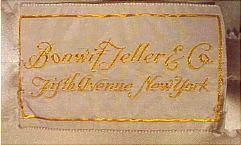 Bonwit Teller & Co.
Fifth Avenue New York